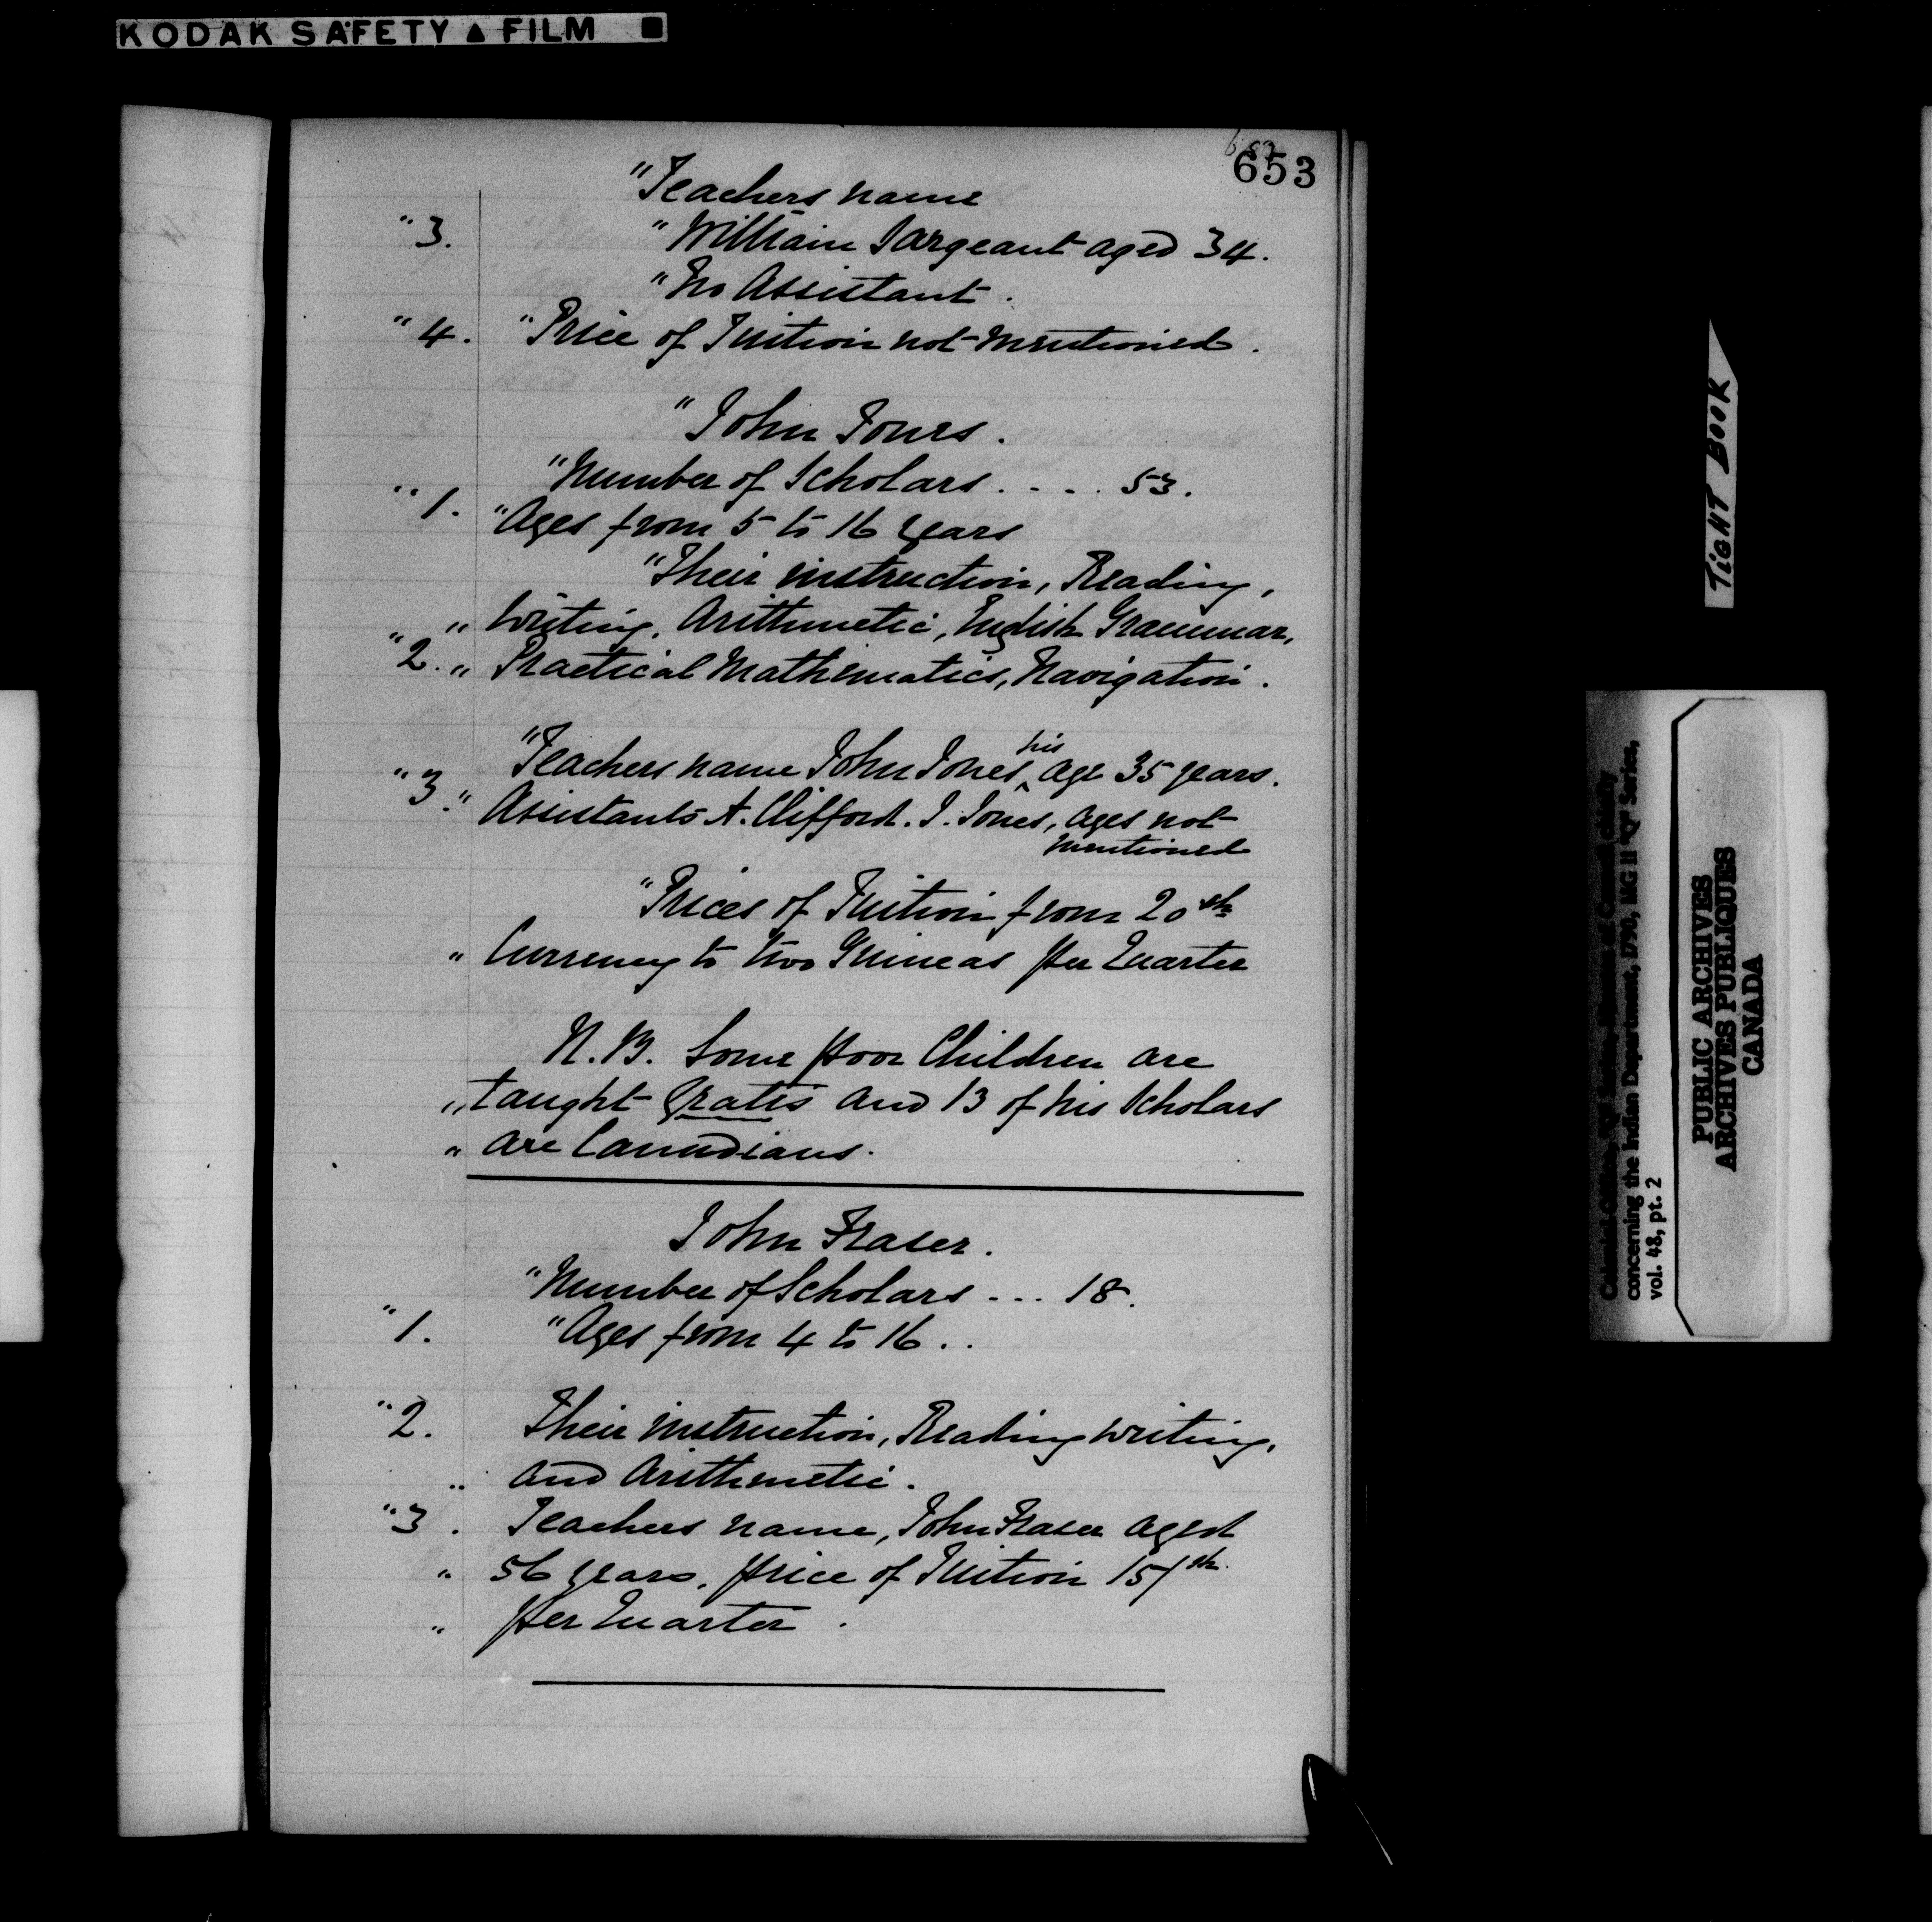 KODAK SAFETY ▲ FILM ■
653
"Teachers name
"3. "William Sargeant aged 34.
"No Assistant.
"4. "Price of Tuition not mentioned.
"John Jones.
"Number of Scholars.... 53.
"1. "Ages from 5 to 16 years
"Their instruction, Reading,
" Writing, Arithmetic, English Grammar,
"2. " Practical Mathematics, Navigation.
"Teachers name John Jones, his age 35 years.
"3. " Assistants A. Clifford. J. Jones, ages not
mentioned
"Prices of Tuition from 20 sh
" Currency to two Guineas per Quarter
N.B. Some poor Children are
" taught Gratis and 13 of his Scholars
" are Canadians.
John Fraser.
"Number of Scholars... 18.
"1. "Ages from 4 to 16..
"2. Their instruction, Reading writing,
" and Arithmetic.
"3. Teachers name, John Fraser aged
" 56 years, price of Tuition 15/sh.
" per Quarter.
TIGHT BOOK
concerning the Indian Department, 1790, MG 11 "Q" Series,
vol. 48, pt. 2
PUBLIC ARCHIVES
ARCHIVES PUBLIQUES
CANADA